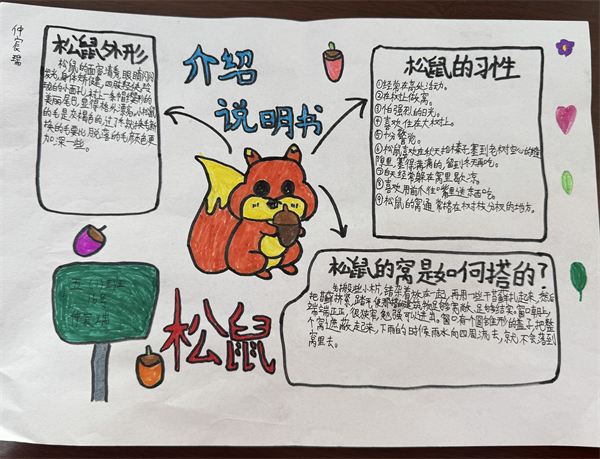 仲宸瑞
介绍
说明书
松鼠外形
松鼠的面容清秀,眼睛闪闪
发光,身体矫健,四肢轻快,玲
珑的小面孔,衬上一条帽缨形的
美丽尾巴,显得格外漂亮,小松鼠
的毛是灰褐色的,过了冬就换毛,新
换的毛要比脱落的毛颜色更
加深一些。
松鼠的习性
①经常在高处活动。
②在树上做窝。
③怕强烈的日光。
④喜欢住在大树上。
⑤十分警觉。
⑥松鼠喜欢在秋天拾榛子,塞到老树空心的缝
隙里,塞得满满的,留到冬天再吃。
⑦白天经常躲在窝里歇凉。
⑧喜欢用前爪往嘴里送东西吃。
⑨松鼠的窝通常搭在树枝分杈的地方。
松鼠的窝是如何搭的?
先搬些小木片,错杂着放在一起,再用一些干苔藓扎起来,然后
把苔藓挤紧,踏平,使那搭的建筑物足够宽敞、足够结实。窝口朝上,
端端正正,很狭窄,勉强可以进出。窝口有个圆锥形的盖子,把整
个窝遮蔽起来,下雨的时候雨水向四周流去,就不会落到
窝里去。
仲宸瑞
松鼠